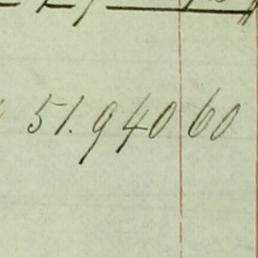 51.940 60